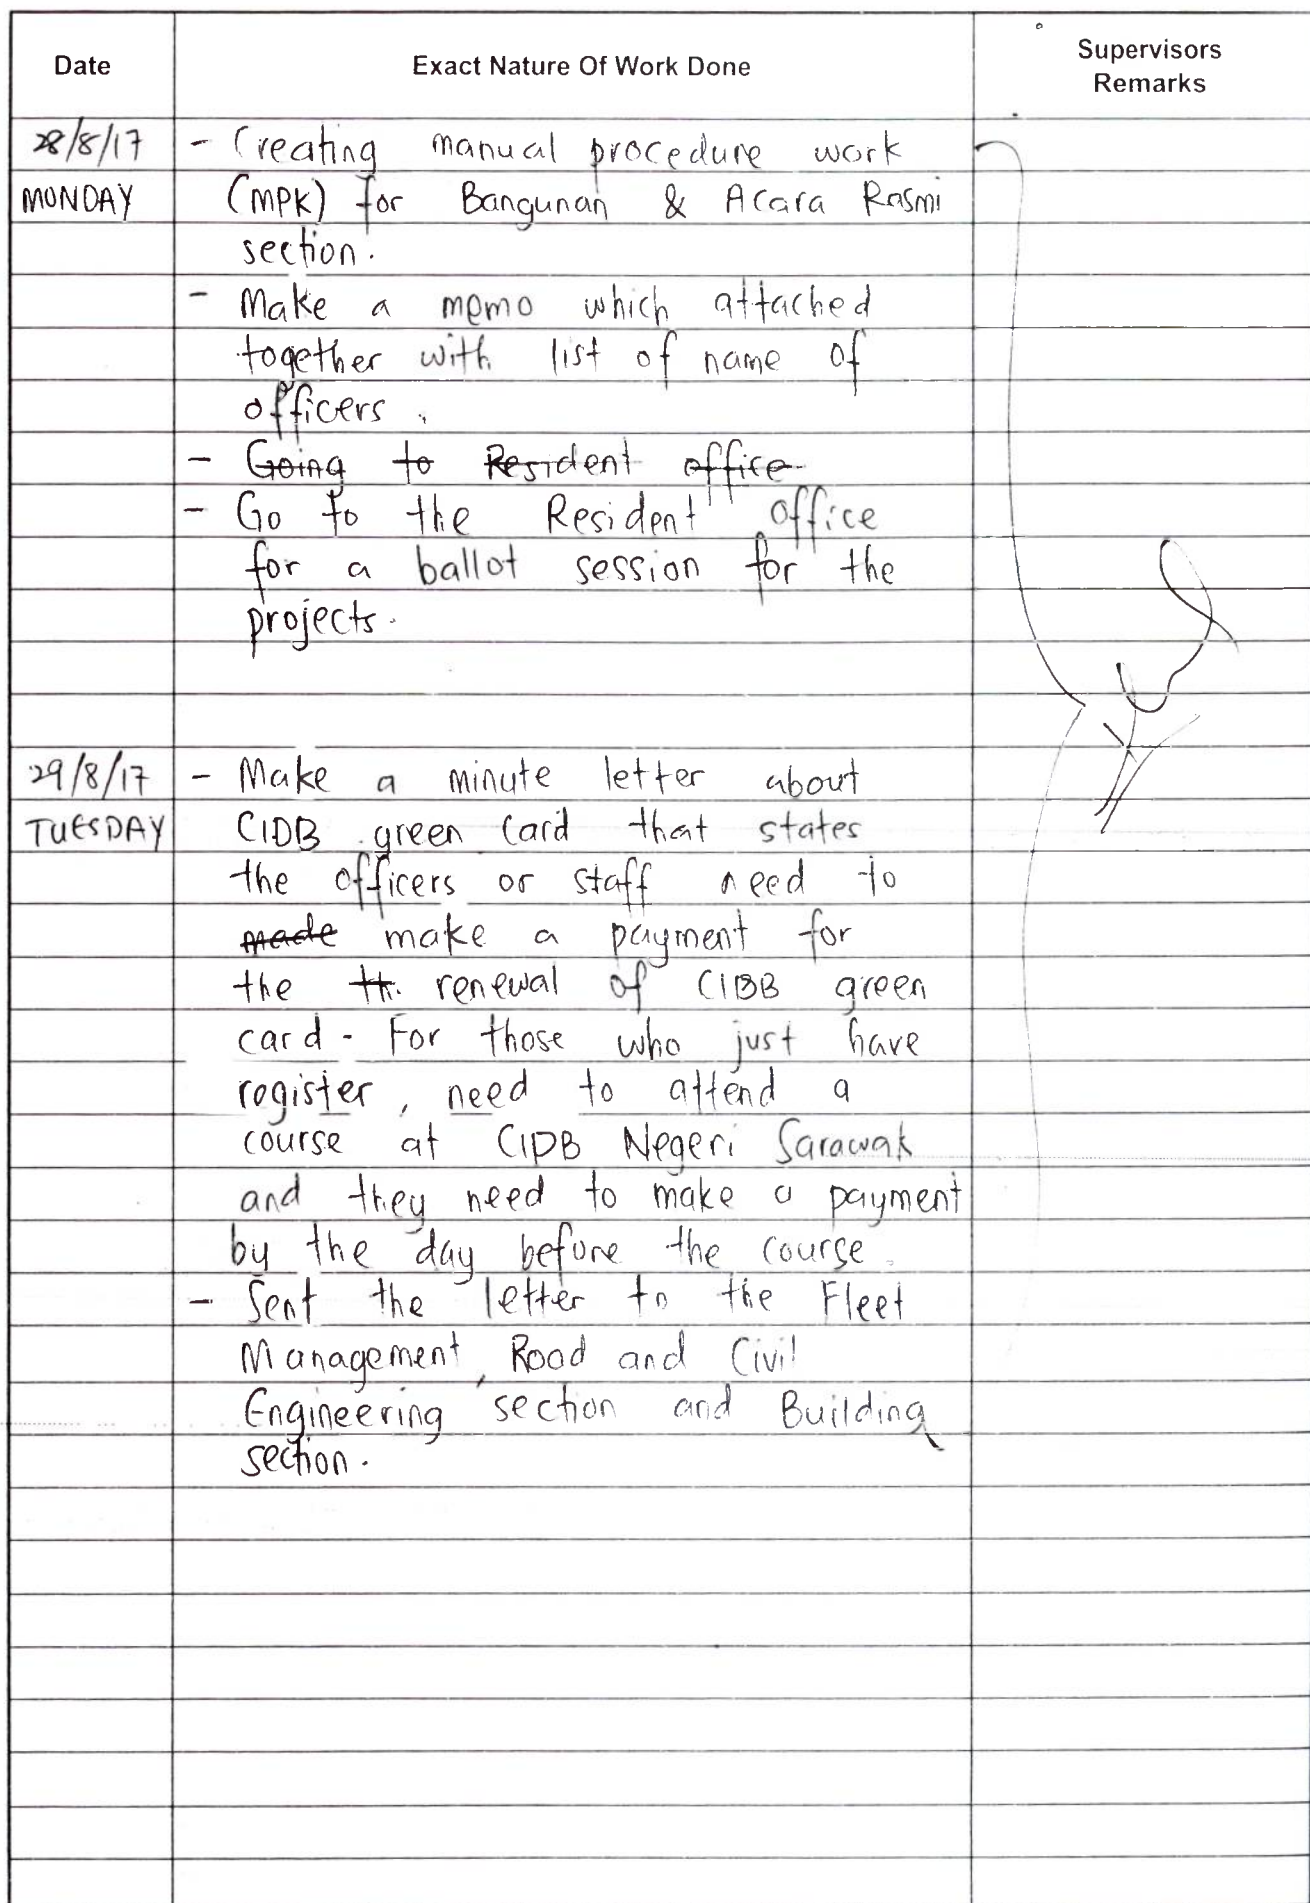 Date Exact Nature Of Work Done Supervisors Remarks
28/8/17 - Creating manual procedure work
MONDAY (MPK) for Bangunan & Acara Rasmi
section.
- Make a memo which attached
together with list of name of
officers.
- Going to Resident office
- Go to the Resident office
for a ballot session for the
projects.
29/8/17 - Make a minute letter about
TUESDAY CIDB green card that states
the officers or staff need to
made make a payment for
the th. renewal of CIBB green
card - For those who just have
register, need to attend a
course at CIDB Negeri Sarawak
and they need to make a payment
by the day before the course.
- Sent the letter to the Fleet
Management, Road and Civil
Engineering section and Building
section.